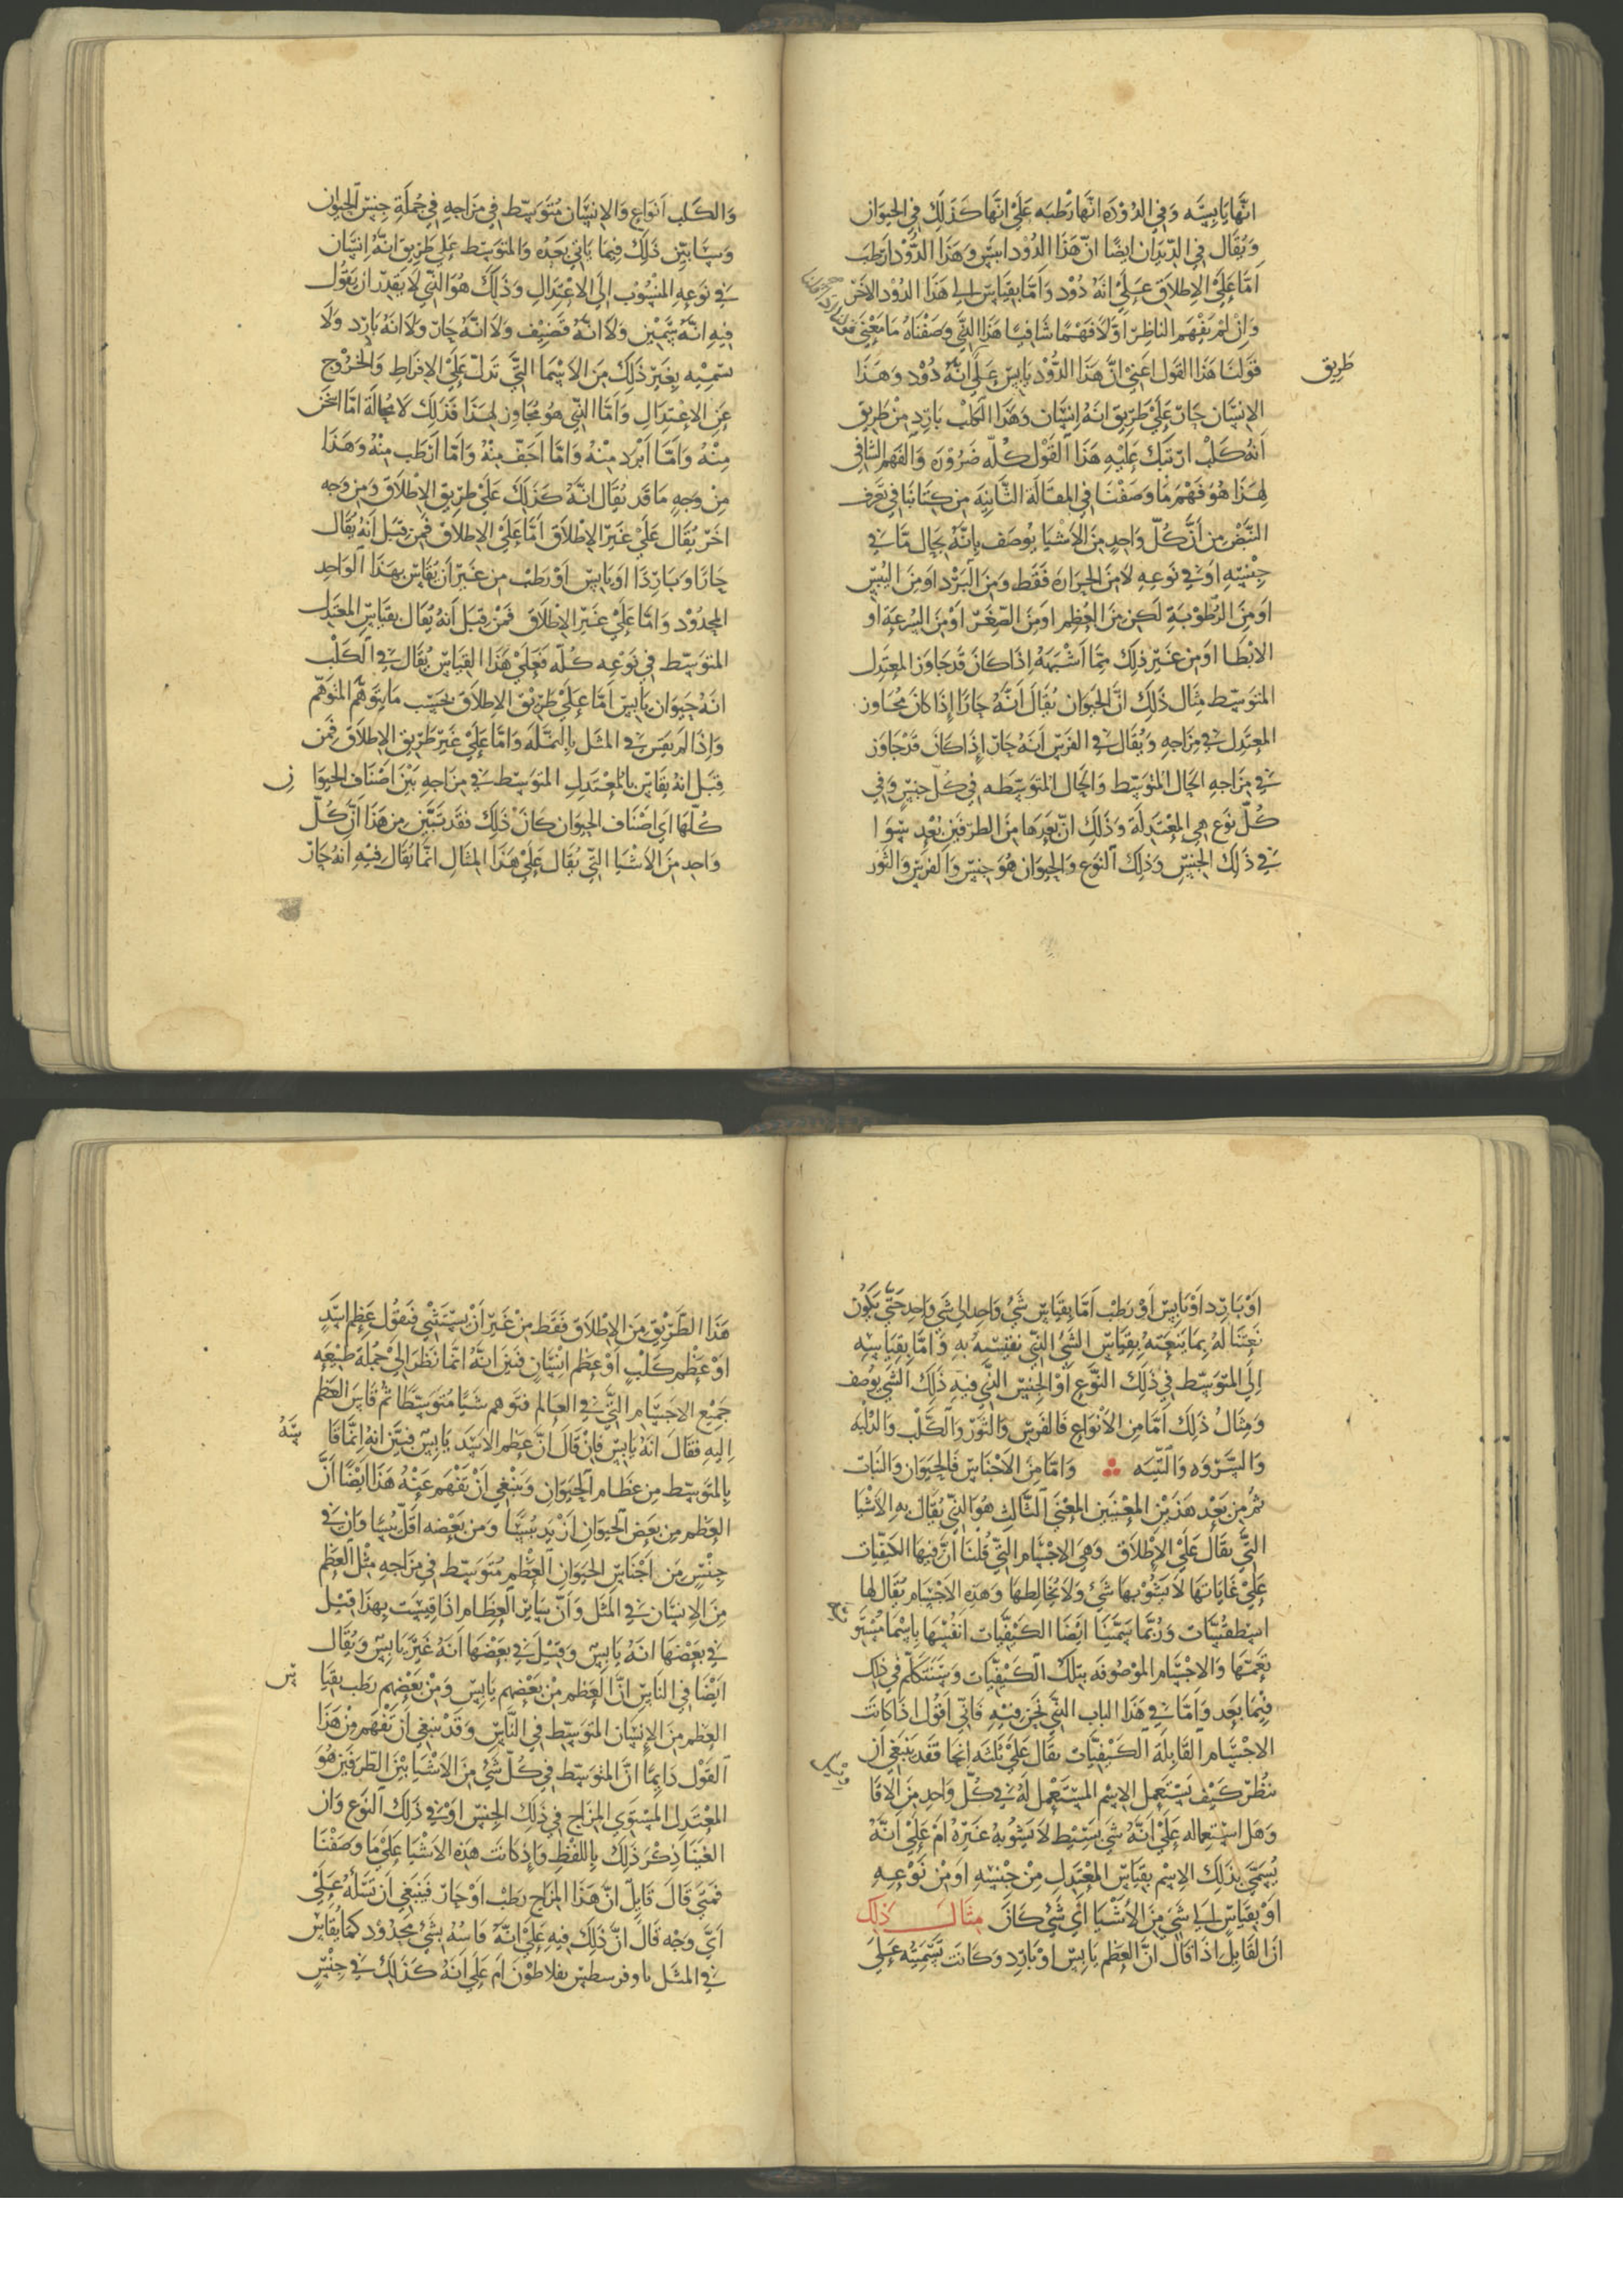 انها يابسه وفي الدوده انها رطبه علي انها كذلك في الحيوان
ويقال في الديدان ايضا ان هذا الدود ايبس وهذا الدود ارطب
اما علي الاطلاق علي انه دود واما بقياس الي هذا الدود الاخر
وان لم يفهم الناظر اولا فهما شافيا هذا الذي وصفناه ما معني
قولنا هذا القول اعني ان هذا الدود يابس علي انه دود وهذا
طريق
الانسان حار علي طريق انه انسان وهذا الكلب بارد من طريق
انه كلب ارتبك عليه هذا القول كله ضرورة والفهم الشافي
لهذا هو فهم ما وصفنا في المقالة الثانية من كتابنا في تعرف
النبض من ان كل واحد من الاشيا يوصف بانه بحال ما في
جنسه او في نوعه لا من الحرارة فقط ومن البرد او من اليبس
او من الرطوبة لكن من العظم او من الصغر او من السرعة او
الابطا او من غير ذلك مما اشبهه اذا كان قد جاوز المعتدل
المتوسط مثال ذلك ان الحيوان يقال انه حارا اذا كان مجاوز
المعتدل في مزاجه ويقال في الفرس انه حار اذا كان قد جاوز
في مزاجه الحال المتوسط والحال المتوسطه في كل جنس وفي
كل نوع هي المعتدلة وذلك ان بعدها من الطرفين بعد سوا
في ذلك الجنس وذلك النوع والحيوان هو جنس والفرس والثور
والكلب انواع والانسان متوسط في مزاجه في جملة جنس الحيوان
وسابين ذلك فيما ياتي بعده والمتوسط علي طريق انه انسان
في نوعه المنسوب الي الاعتدال وذلك هو الذي لا يقدر ان يقول
فيه انه سمين ولا انه قضيف ولا انه حار ولا انه بارد ولا
تسميه بغير ذلك من الاسما التي تدل علي الافراط والخروج
عن الاعتدال واما الذي هو مجاوز لهذا فذلك لا محالة اما اسخن
منه واما ابرد منه واما اجف منه واما ارطب منه وهذا
من وجه ما قد يقال انه كذلك علي طريق الاطلاق ومن وجه
اخر يقال علي غير الاطلاق اما علي الاطلاق فمن قبل انه يقال
حارا او باردا او يابس او رطب من غير ان يقاس بهذا الواحد
المحدود واما علي غير الاطلاق فمن قبل انه يقال بقياس المعتدل
المتوسط في نوعه كله فعلي هذا القياس يقال في الكلب
انه حيوان يابس اما علي طريق الاطلاق بحسب ما يتوهم المتوهم
واذا لم يقس في المثل بالنملة واما علي غير طريق الاطلاق فمن
قبل انه يقاس بالمعتدل المتوسط في مزاجه بين اصناف الحيوا ن
كلها اي اصناف الحيوان كان ذلك فقد تبين من هذا ان كل
واحد من الاشيا التي يقال علي هذا المثال انما يقال فيه انه حار
او بارد او يابس او رطب اما بقياس شئ واحد الي شي واحد حتي يكون
نعتنا له بما ينعته بقياس الشئ الذي نقيسه به واما بقياسه
الي المتوسط في ذلك النوع او الجنس الذي فيه ذلك الشي يوصف
ومثال ذلك اما من الانواع فالفرس والثور والكلب والدلبه
والسروه والتينه واما من الاجناس فالحيوان والنبات
ثم من بعد هذين المعنيين المعني الثالث هو الذي يقال به الاشيا
التي يقال علي الاطلاق وهي الاجسام التي قلنا ان فيها الكيفيات
علي غاياتها لا يشوبها شئ ولا يخالطها وهذه الاجسام يقال لها
اسطقسات وربما سمينا ايضا الكيفيات انفسها باسما
تعمها والاجسام الموصوفه بتلك الكيفيات وسنتكلم في ذلك
فيما بعد واما في هذا الباب الذي نحن فيه فاني اقول اذا كانت
الاجسام القابلة الكيفيات يقال علي ثلثه انحا فقد ينبغي ان
ننظر كيف يستعمل الاسم المستعمل له في كل واحد من الاقا
وهل استعماله علي انه شي بسيط لا يشوبه غيره ام علي انه
يسمي بذلك الاسم بقياس المعتدل من جنسه او من نوعه
او بقياس الي شي من الاشيا اي شي كان مثال ذلك
ان القايل اذا قال ان العظم يابس او بارد وكانت تسميته علي
هذا الطريق من الاطلاق فقط من غير ان يستثني فيقول عظم اسد
او عظم كلب او عظم انسان فبين انه انما نظر الي جملة طبيعه
جميع الاجسام التي في العالم فتوهم شيا متوسطا ثم قاس العظم
اليه فقال انه يابس فان قال ان عظم الاسد يابس فبين انه انما قا سه
بالمتوسط من عظام الحيوان وينبغي ان يفهم عنه هذا ايضا ان
العظم من بعض الحيوان ازيد يبسا ومن بعضه اقل يبسا وان في
جنس من اجناس الحيوان العظم متوسط في مزاجه مثل العظم
من الانسان في المثل وان ساير العظام اذا قيست بهذا قيل
في بعضها انه يابس وقيل في بعضها انه غير يابس ويقال
ايضا في الناس ان العظم من بعضهم يابس ومن بعضهم رطب بقيا س
العظم من الانسان المتوسط في الناس وقد ينبغي ان يفهم من هذا
القول دايما ان المتوسط في كل شئ من الاشيا بين الطرفين هو
المعتدل المستوي المزاج في ذلك الجنس او في ذلك النوع وان
الغينا ذكر ذلك باللفظ واذ كانت هذه الاشيا علي ما وصفنا
فمتي قال قايل ان هذا المزاج رطب او حار فينبغي ان نسله علي
اي وجه قال ان ذلك فيه علي انه قاسه بشئ محدود كما يقاس
في المثل ثاوفرسطس بفلاطون ام علي انه كذلك في جنس